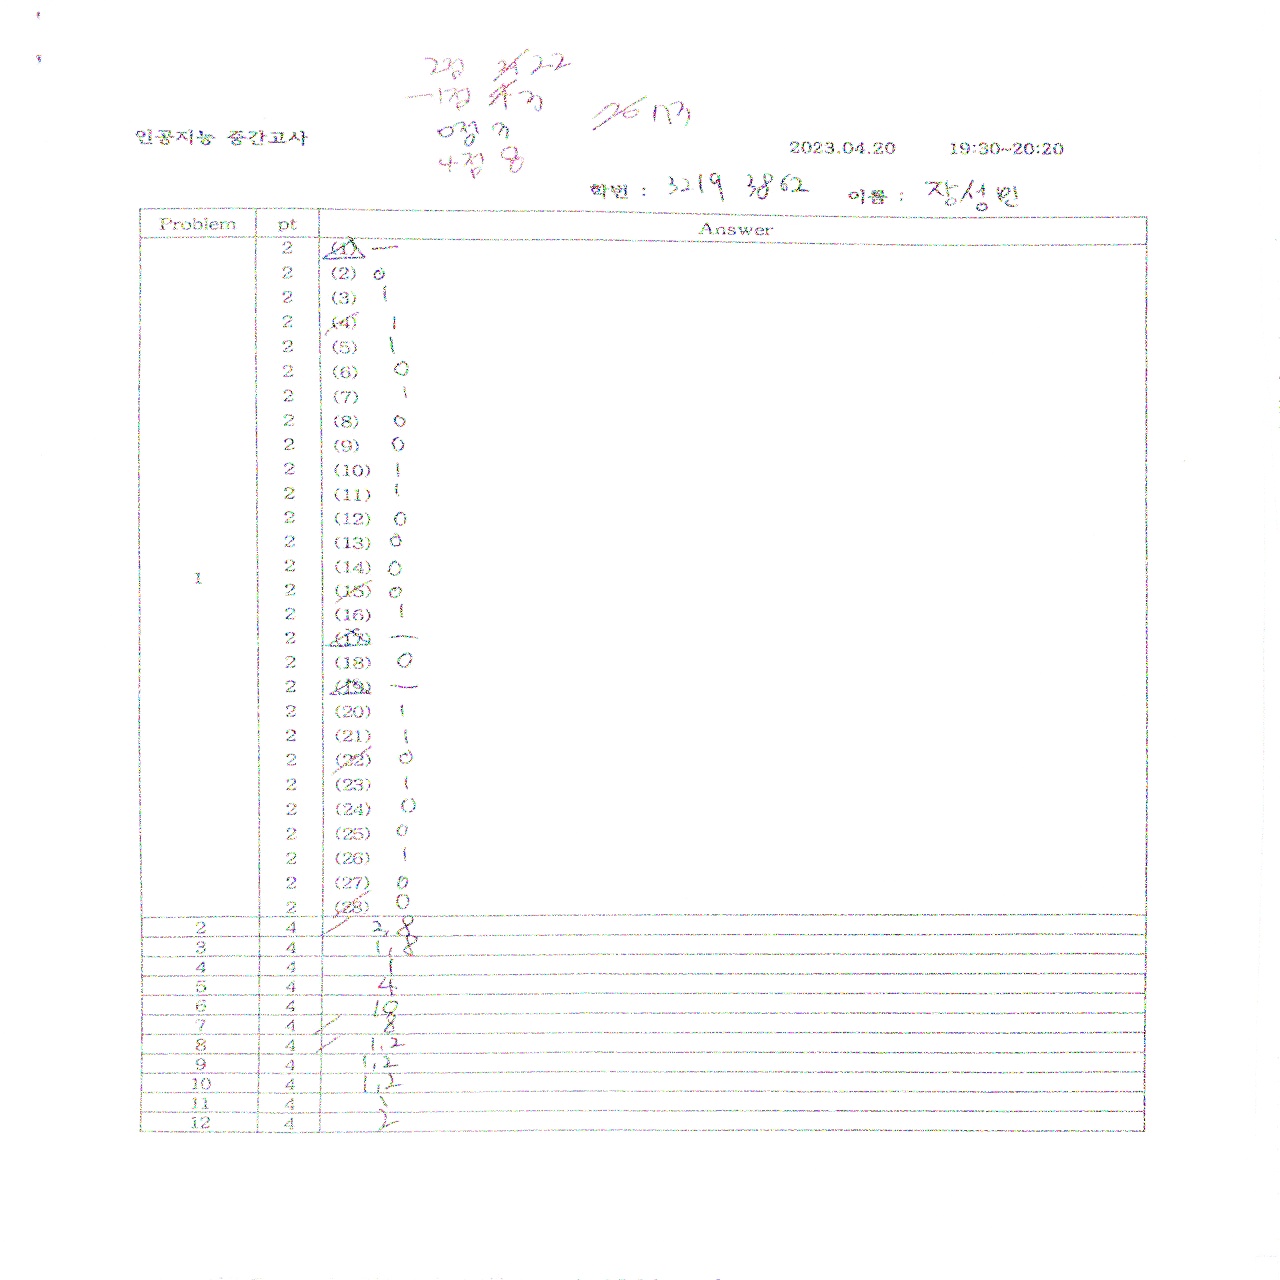 2점 22
-1점 개
인공지능 중간고사
0점 개
4점 8
2023.04.20 19:30~20:20
학번 : 3219 3862 이름 : 장성민
Problem pt Answer
1
2 (1) —
2 (2) 0
2 (3) 1
2 (4) 1
2 (5) 1
2 (6) 0
2 (7) 1
2 (8) 0
2 (9) 0
2 (10) 1
2 (11) 1
2 (12) 0
2 (13) 0
2 (14) 0
2 (15) 0
2 (16) 1
2 (17) —
2 (18) 0
2 (19) —
2 (20) 1
2 (21) 1
2 (22) 0
2 (23) 1
2 (24) 0
2 (25) 0
2 (26) 1
2 (27) 0
2 (28) 0
2 4 2, 8
3 4 1, 8
4 4 1
5 4 4
6 4 10
7 4 8
8 4 1, 2
9 4 1, 2
10 4 1, 2
11 4 1
12 4 2